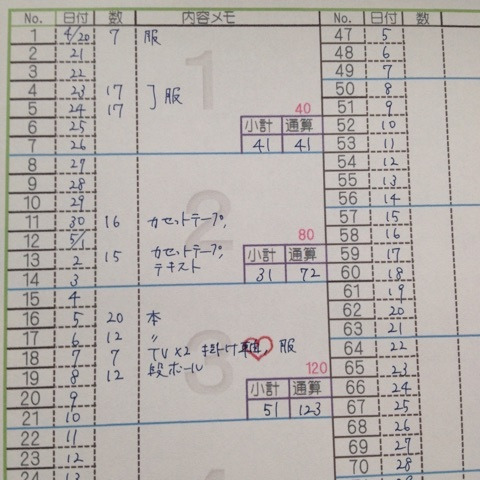 No. 日付 数 内容メモ No. 日付 数
1 4/20 7 服 47 5
2 21 48 6
3 22 49 7
4 23 17 ] 服 50 8
5 24 17 40 51 9
6 25 小計 通算 52 10
7 26 41 41 53 11
8 27 54 12
9 28 55 13
10 29 56 14
11 30 16 カセットテープ, 57 15
12 5/1 80 58 16
13 2 15 カセットテープ, 小計 通算 59 17
テキスト
14 3 31 72 60 18
15 4 61 19
16 5 20 本 62 20
17 6 12 〃 63 21
18 7 7 TV×2 掛け軸, 服 64 22
19 8 12 段ボール 120 65 23
20 9 小計 通算 66 24
21 10 51 123 67 25
22 11 68 26
23 12 69 27
24 13 70 28
1
2
3